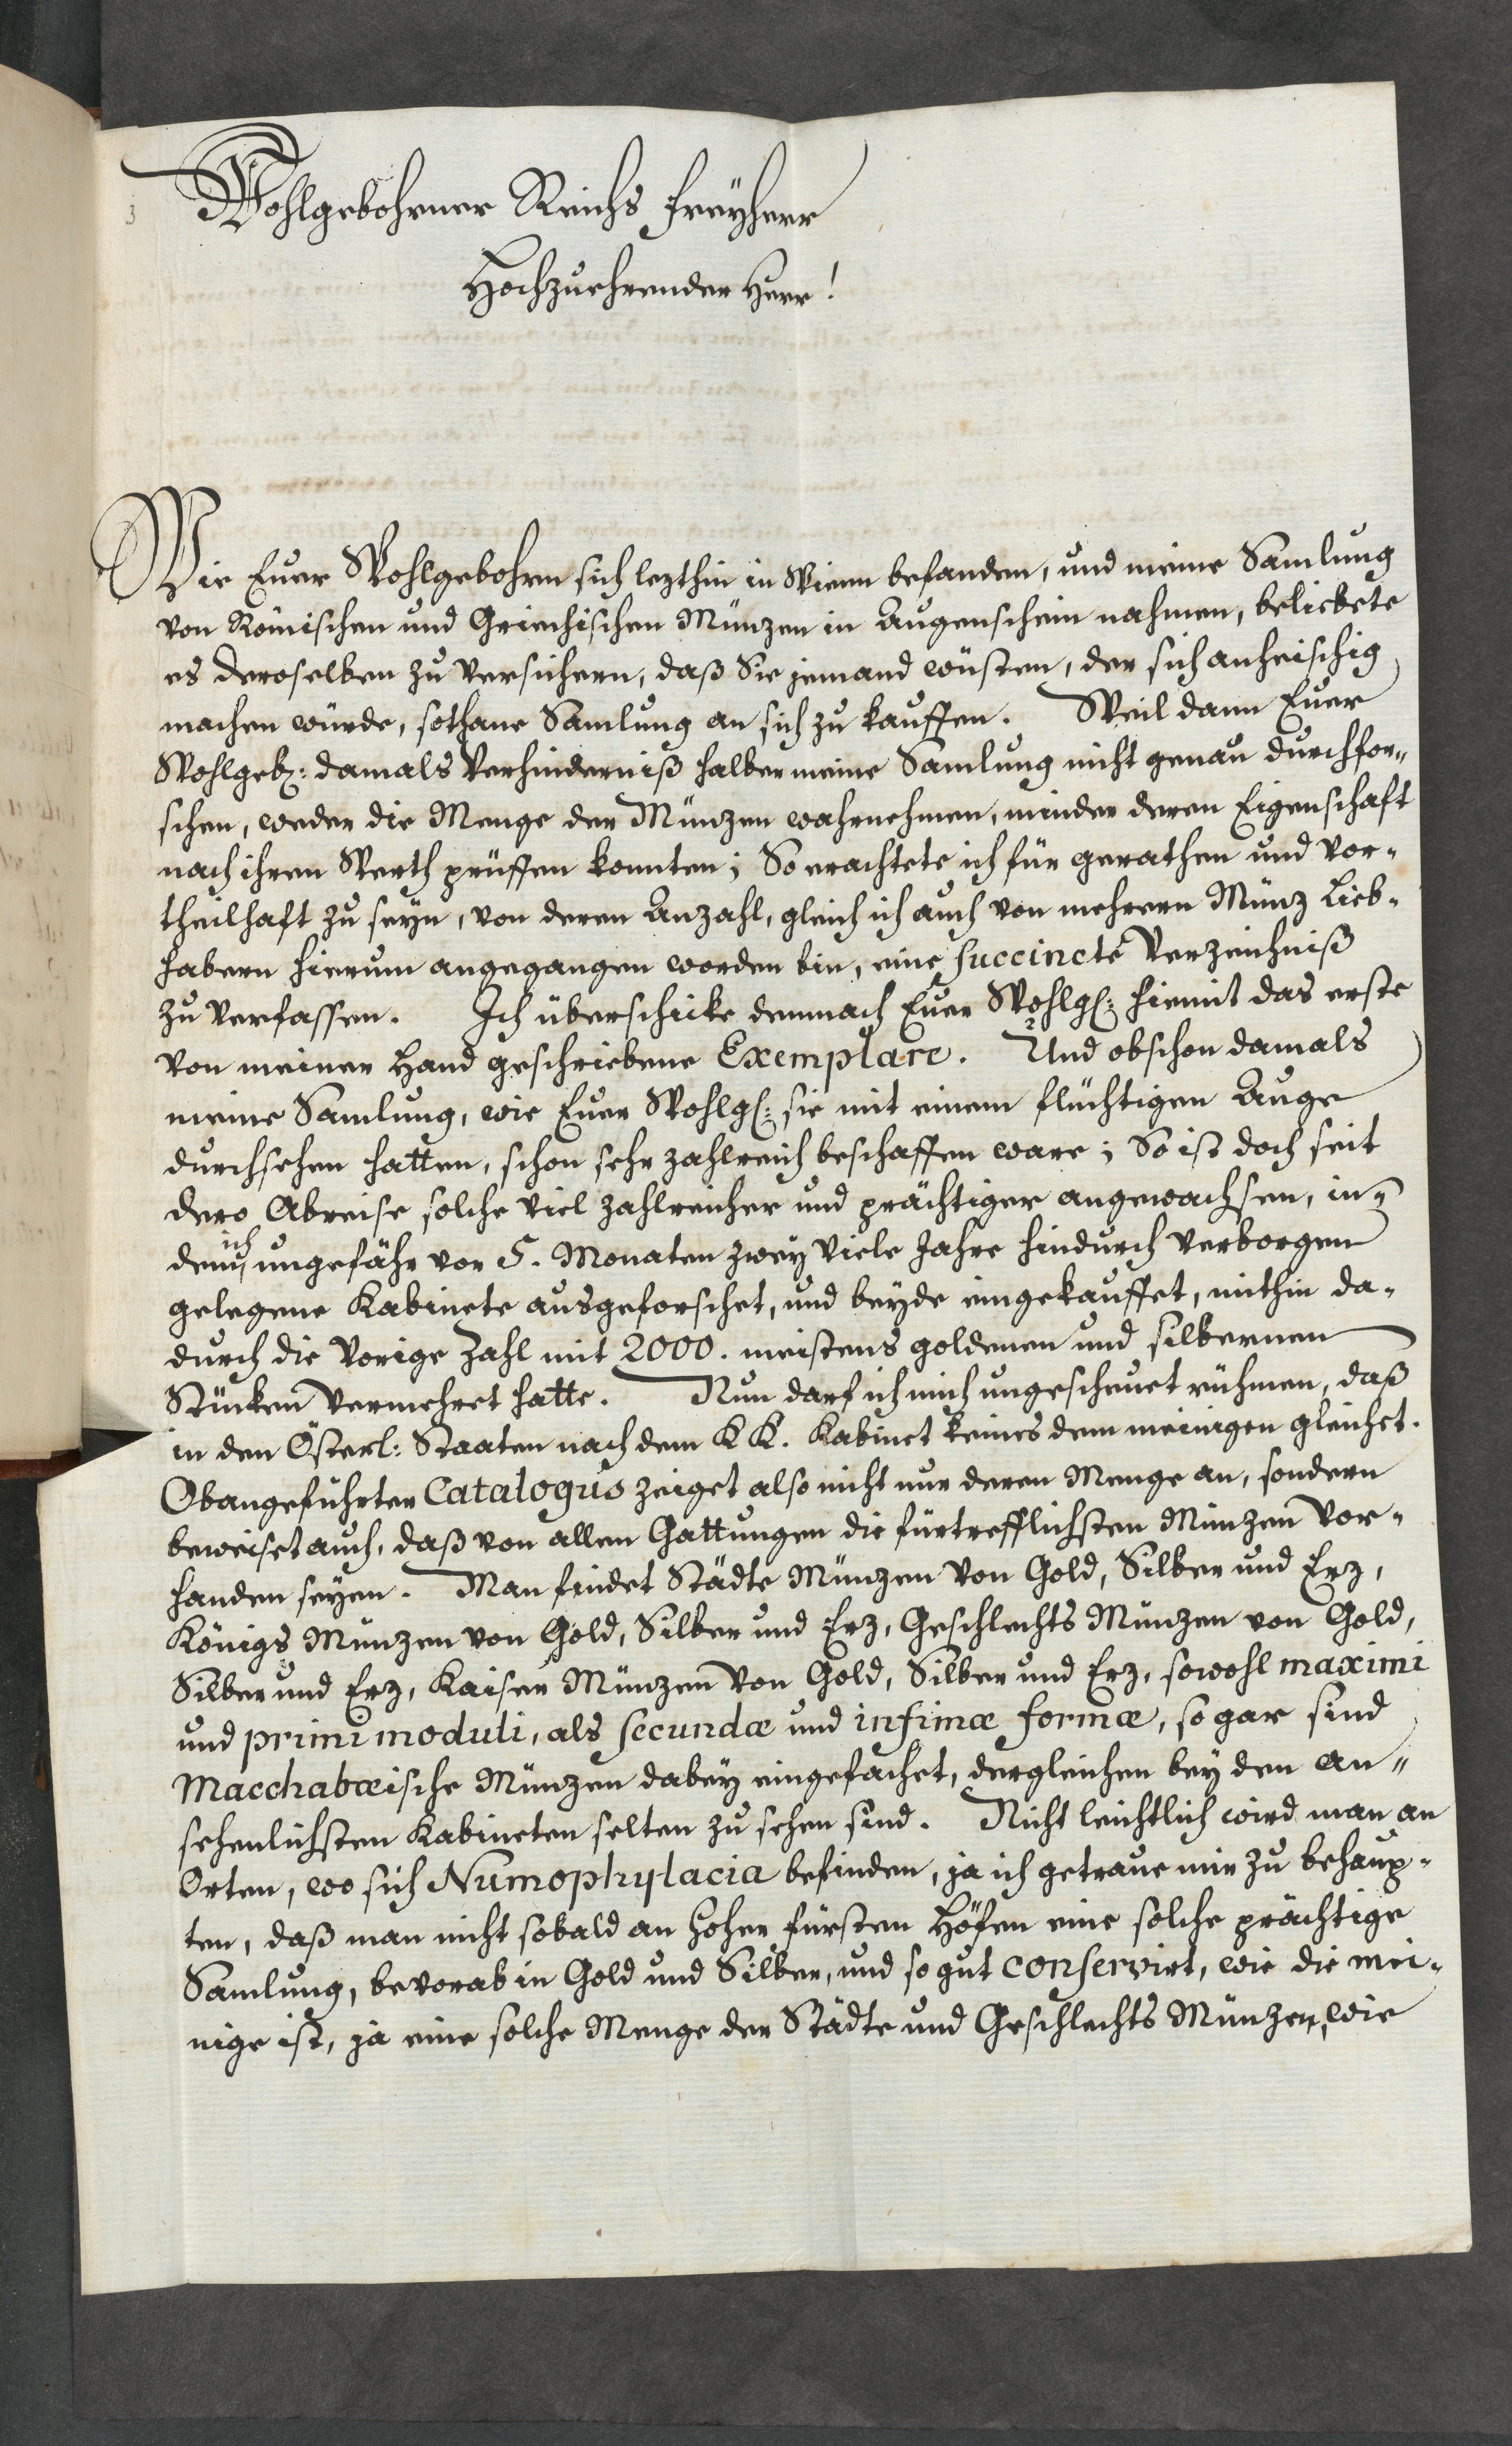 3
Wohlgebohrner Reichs Freÿherr
Hochzuehrender Herr!
Wie Euer Wohlgebohrn sich lezthin in Wienn befanden, und meine Samlung
von Römischen und Griechischen Münzen in Augenschein nahmen, beliebete
es deroselben zu versichern, daß Sie jemand wüsten, der sich anheischig
machen würde, sothane Samlung an sich zu kauffen. Weil dann Euer
Wohlgeb: damals Verhinderniß halber meine Samlung nicht genau durchfor-
schen, weder die Menge der Münzen wahrnehmen, minder deren Eigenschaft
nach ihren Werth prüffen konnten; So erachtete ich für gerathen und vor-
theilhaft zu seyn, von deren Anzahl, gleich ich auch von mehrern Münz Lieb-
habern hierum angegangen worden bin, eine succincte Verzeichniß
zu verfassen. Ich überschicke demnach Euer Wohlg: hiemit das erste
von meiner Hand geschriebene Exemplare. Und obschon damals
meine Samlung, wie Euer Wohlg: sie mit einem flüchtigen Auge
durchsehen hatten, schon sehr zahlreich beschaffen ware; So ist doch seit
dero Abreise solche viel zahlreicher und prächtiger angewachsen, in-
dem ich ungefähr vor 5. Monaten zwey viele Jahre hindurch verborgen
gelegene Kabinete ausgeforschet, und beyde eingekauffet, mithin da-
durch die vorige Zahl mit 2000. meistens goldenen und silbernen
Stücken vermehret hatte. Nun darf ich mich ungescheuet rühmen, daß
in den Österl: Staaten nach dem K K. Kabinet keines dem meinigen gleichet.
Obangeführter Catalogus zeiget also nicht nur deren Menge an, sondern
beweiset auch, daß von allen Gattungen die fürtrefflichsten Münzen vor-
handen seyen. Man findet Städte Münzen von Gold, Silber und Erz,
Königs Münzen von Gold, Silber und Erz, Geschlechts Münzen von Gold,
Silber und Erz, Kaiser Münzen von Gold, Silber und Erz, sowohl maximi
und primi moduli, als secundæ und infimæ formæ, so gar sind
Macchabæische Münzen dabey eingefachet, dergleichen bey den an-
sehenlichsten Kabineten selten zu sehen sind. Nicht leichtlich wird man an
Orten, wo sich Numophylacia befinden, ja ich getraue mir zu behaup-
ten, daß man nicht sobald an hoher Fürsten Höfen eine solche prächtige
Samlung, bevorab in Gold und Silber, und so gut conservirt, wie die mei-
nige ist, ja eine solche Menge der Städte und Geschlechts Münzen, wie